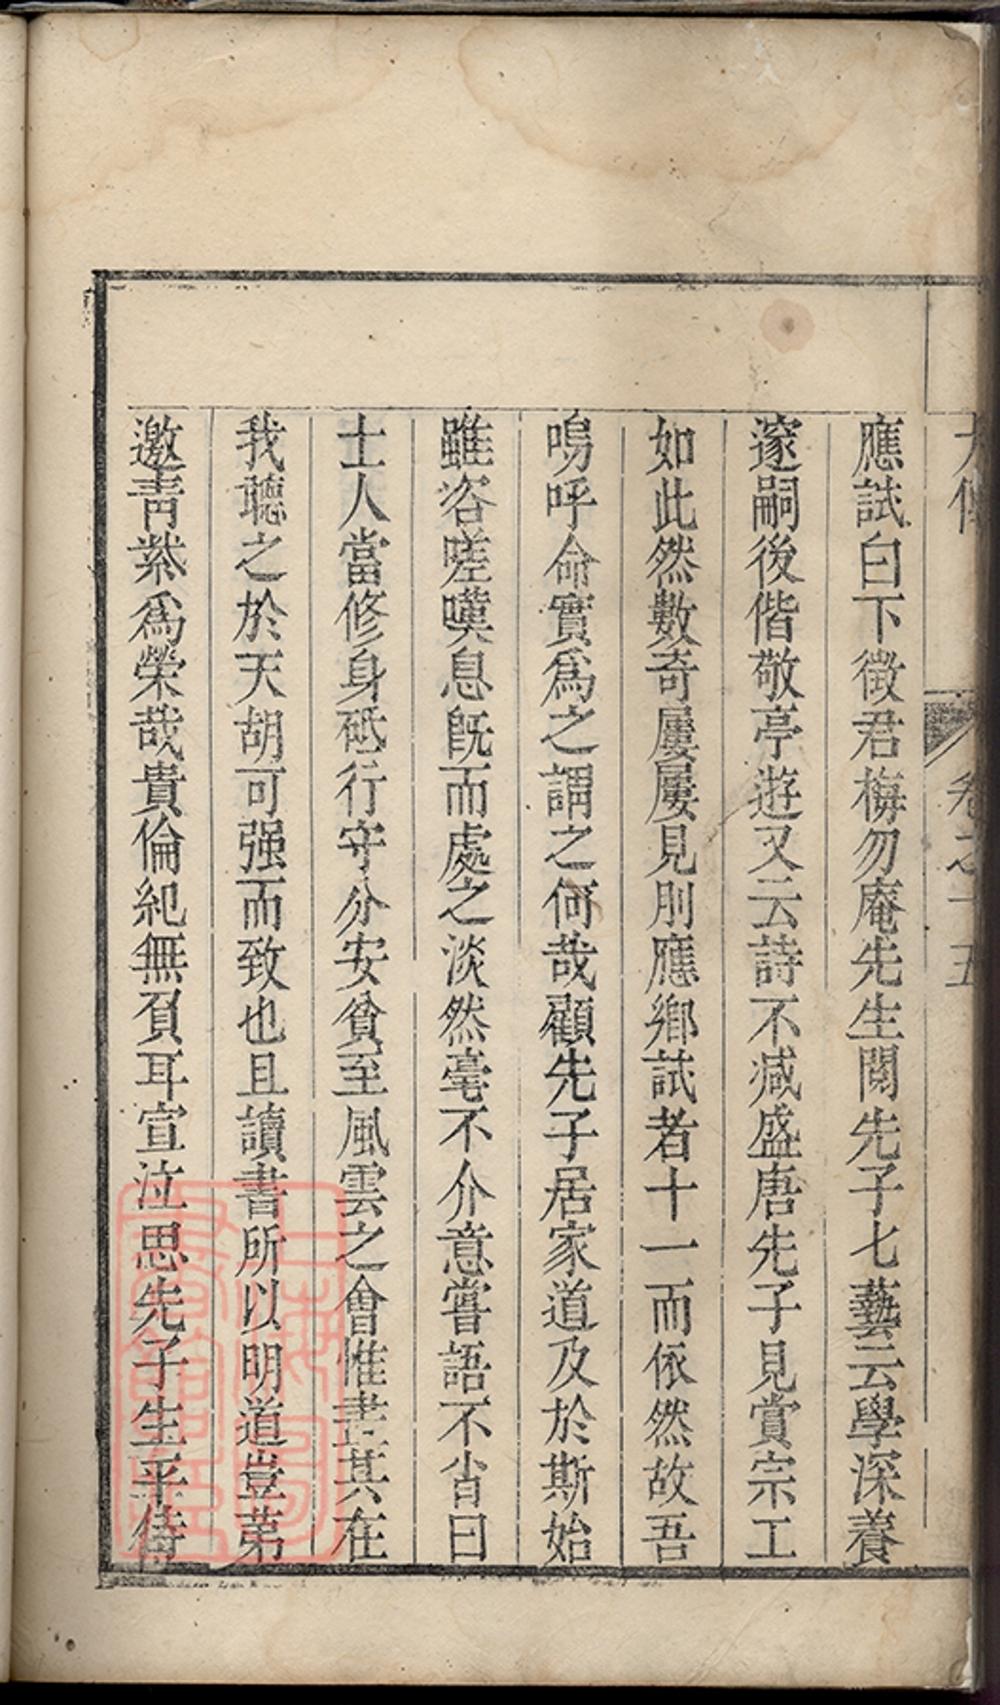 卷之十五
應試白下徵君梅勿庵先生閱先子七藝云學深養
邃嗣後偕敬亭遊又云詩不减盛唐先子見賞宗工
如此然數奇屢屢見刖應鄉試者十一而依然故吾
嗚呼命實爲之謂之何哉顧先子居家道及於斯始
雖咨嗟嘆息旣而處之淡然毫不介意嘗語不肖曰
士人當修身砥行守分安貧至風雲之會惟盡其在
我聽之於天胡可强而致也且讀書所以明道豈第
邀靑紫爲榮哉貴倫紀無負耳宣泣思先子生平侍
上海圖
書館藏